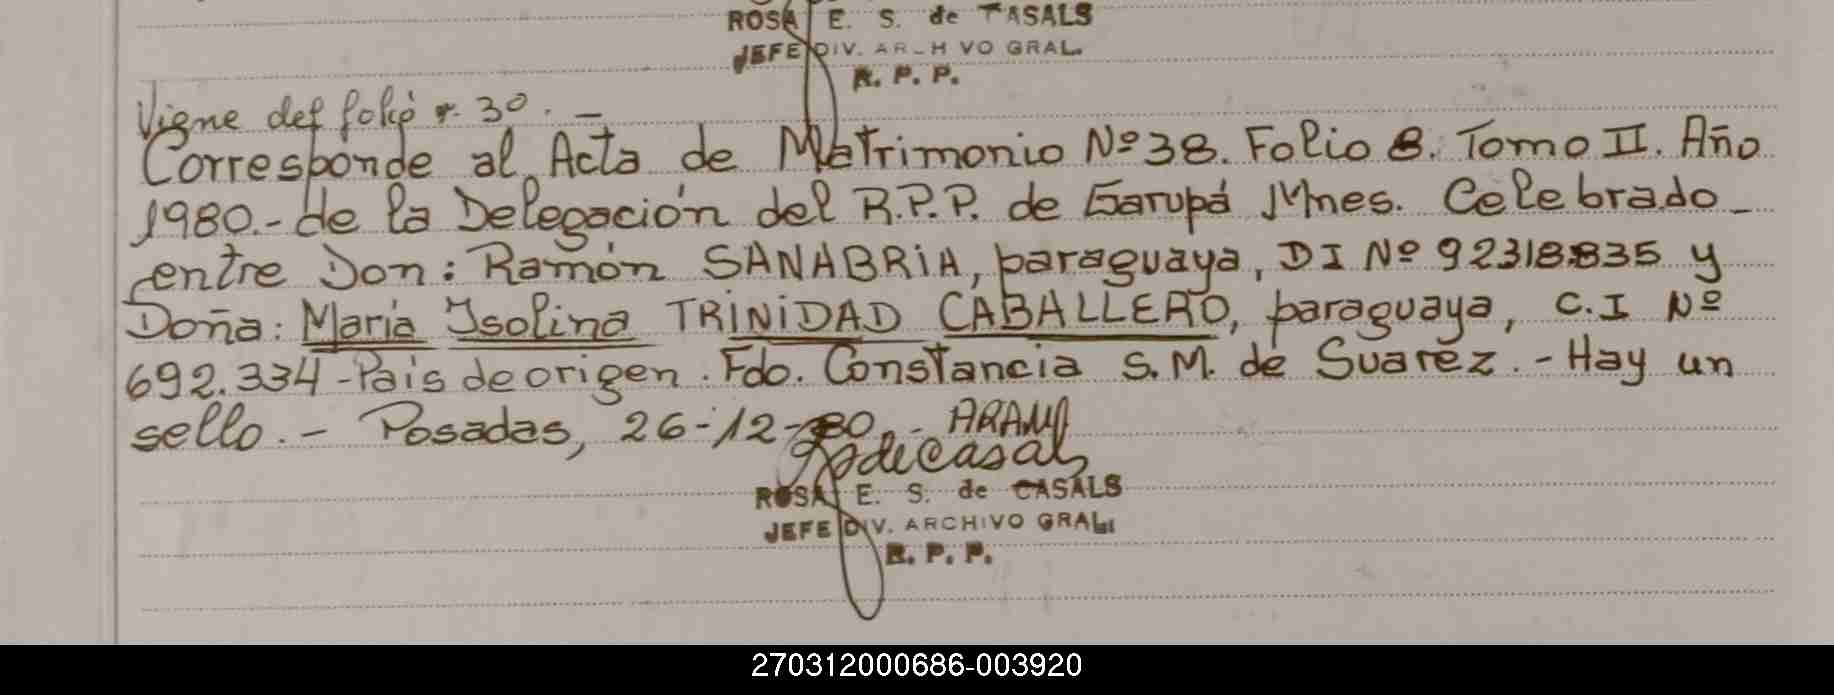 ROSA E. S. de CASALS
JEFE DIV. ARCHIVO GRAL.
R. P. P.
Viene del folio 30. _
Corresponde al Acta de Matrimonio Nº 38. Folio 8. Tomo II. Año
1980.- de la Delegación del R.P.P. de Garupá Mnes. Celebrado_
entre Don: Ramón SANABRIA, paraguaya, DI Nº 92318835 y
Doña: María Isolina TRINIDAD CABALLERO, paraguaya, C.I Nº
692.334 - Pais de origen. Fdo. Constancia S.M. de Suarez. - Hay un
sello. - Posadas, 26-12-80. -
ROSA E. S. de CASALS
JEFE DIV. ARCHIVO GRAL.
R. P. P.
270312000686-003920